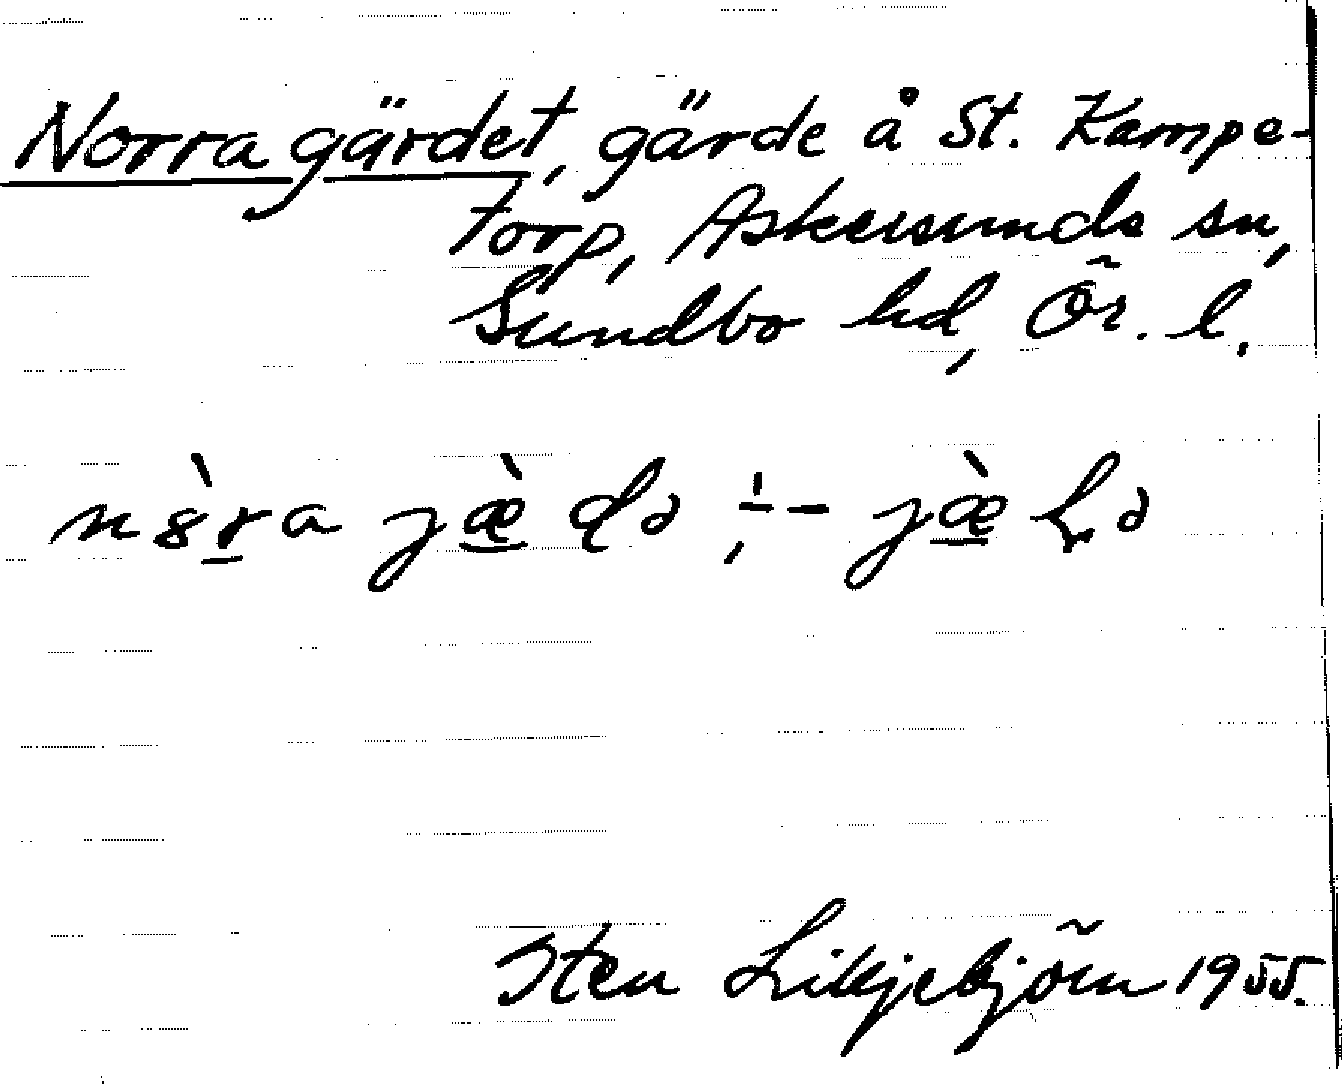 Norra gärdet, gärde å St. Kampe-
torp, Askersunds sn,
Sundbo hd, Ör. l.
Sten Liljebjörn 1955.